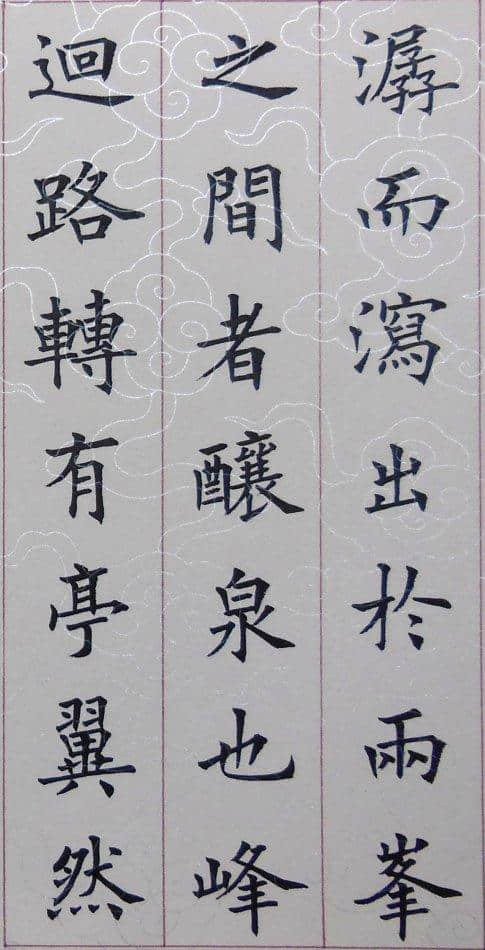 潺而瀉出於兩峯
之間者釀泉也峰
迴路轉有亭翼然